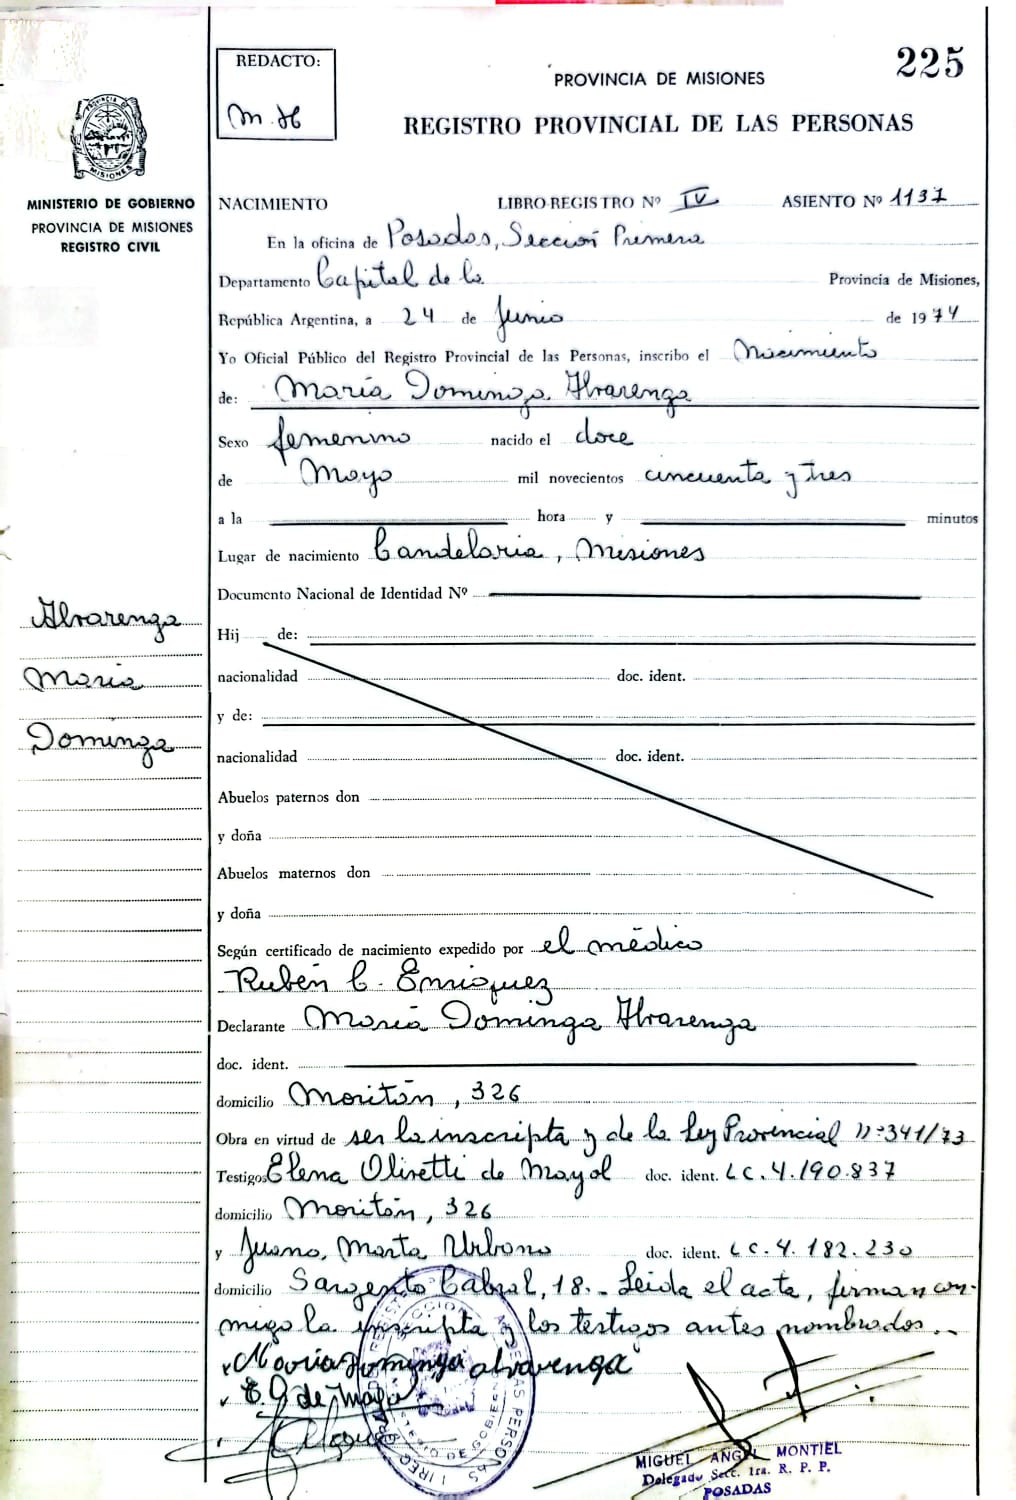 225
REDACTO:
M. H
PROVINCIA DE MISIONES
REGISTRO PROVINCIAL DE LAS PERSONAS
PROVINCIA DE
MISIONES
MINISTERIO DE GOBIERNO
PROVINCIA DE MISIONES
REGISTRO CIVIL
NACIMIENTO LIBRO REGISTRO Nº IV ASIENTO Nº 1137
En la oficina de Posadas, Sección Primera
Departamento Capital de la Provincia de Misiones,
República Argentina, a 24 de Junio de 1974
Yo Oficial Público del Registro Provincial de las Personas, inscribo el Nacimiento
de: María Dominga Alvarenga
Sexo femenino nacido el doce
de Mayo mil novecientos cincuenta y tres
a la hora y minutos
Lugar de nacimiento Candelaria, Misiones
Documento Nacional de Identidad Nº
Alvarenga
María
Dominga
Hij de:
nacionalidad doc. ident.
y de:
nacionalidad doc. ident.
Abuelos paternos don
y doña
Abuelos maternos don
y doña
Según certificado de nacimiento expedido por el médico
Rubén C. Enriquez
Declarante María Dominga Alvarenga
doc. ident.
domicilio Moritán, 326
Obra en virtud de ser la inscripta y de la Ley Provincial nº 341/73
Testigos Elena Olivetti de Mayol doc. ident. LC. 4.190.837
domicilio Moritán, 326
y Juana, Marta Urbano doc. ident. LC. 4. 182. 230
domicilio Sargento Cabral, 18. - Leida el acta, firman con-
migo la inscripta y los testigos antes nombrados. -
María Dominga alvarenga
E. O de Mayol
MIGUEL ANGEL MONTIEL
Delegado Secc. 1ra. R. P. P.
POSADAS